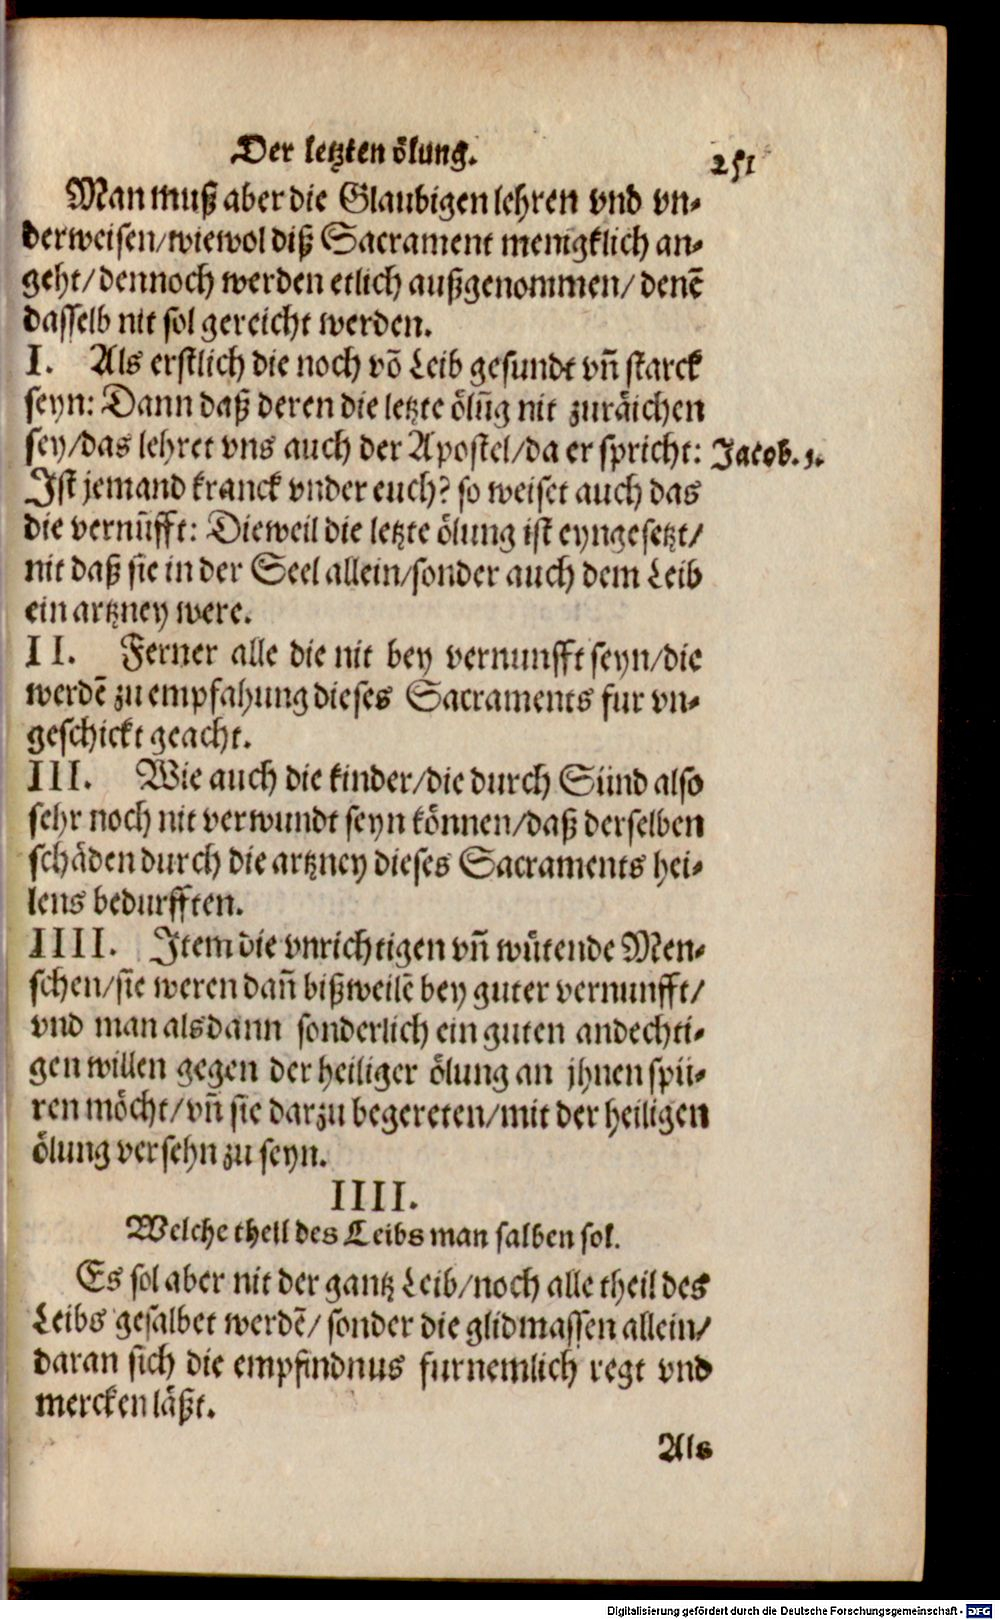 Der letzten ölung.
251
Man muß aber die Glaubigen lehren vnd vn-
derweisen/wiewol diß Sacrament menigklich an-
geht/ dennoch werden etlich außgenommen/ denē
dasselb nit sol gereicht werden.
I. Als erstlich die noch võ Leib gesundt vñ starck
seyn: Dann daß deren die letzte ölūg nit zuräichen
sey/das lehret vns auch der Apostel/da er spricht:
Jacob. 5.
Ist jemand kranck vnder euch? so weiset auch das
die vernūfft: Dieweil die letzte ölung ist eyngesetzt/
nit daß sie in der Seel allein/sonder auch dem Leib
ein artzney were.
II. Ferner alle die nit bey vernunfft seyn/die
werdē zu empfahung dieses Sacraments fur vn-
geschickt geacht.
III. Wie auch die kinder/die durch Sünd also
sehr noch nit verwundt seyn können/daß derselben
schäden durch die artzney dieses Sacraments hei-
lens bedurfften.
IIII. Item die vnrichtigen vñ wütende Men-
schen/sie weren dañ bißweilē bey guter vernunfft/
vnd man alsdann sonderlich ein guten andechti-
gen willen gegen der heiliger ölung an jhnen spü-
ren möcht/vñ sie darzu begereten/mit der heiligen
ölung versehn zu seyn.
IIII.
Welche theil des Leibs man salben sol.
Es sol aber nit der gantz Leib/noch alle theil des
Leibs gesalbet werdē/ sonder die glidmassen allein/
daran sich die empfindnus furnemlich regt vnd
mercken läßt.
Als
Digitalisierung gefördert durch die Deutsche Forschungsgemeinschaft - DFG